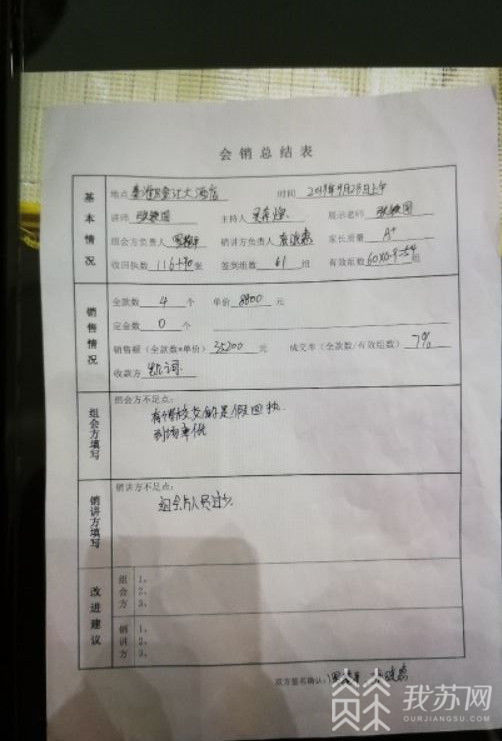 会销总结表
基本情况
地点 大酒店 时间 2019年9月28日上午
讲师 主持人 展示老师
组会方负责人 销讲方负责人 家长质量 A+
收回执数 116+90 张 签到组数 61 组 有效组数
销售情况
全款数 4 个 单价 8800 元
定金数 0 个
销售额(全款数*单价) 35200 元 成交率(全款数/有效组数) 7%
收款方
组会方填写
组会方不足点:
是假回执
到场率低
销讲方填写
销讲方不足点:
组会方人员过少
改进建议
组会方
1、
2、
3、
销讲方
1、
2、
3、
双方签名确认:
我苏网
OURJIANGSU.COM